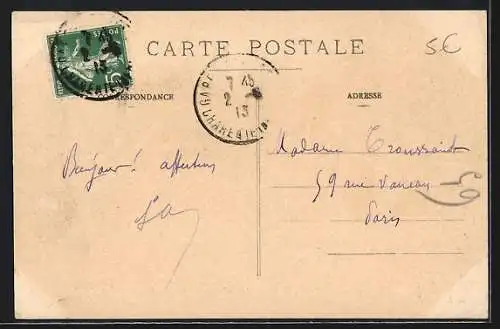 CARTE POSTALE
5€
POSTES
RESPONDANCE
ADRESSE
7 45
2
13
Bonjour! affectueux
Madame Troussaint
59 rue Vaneau
Paris
59